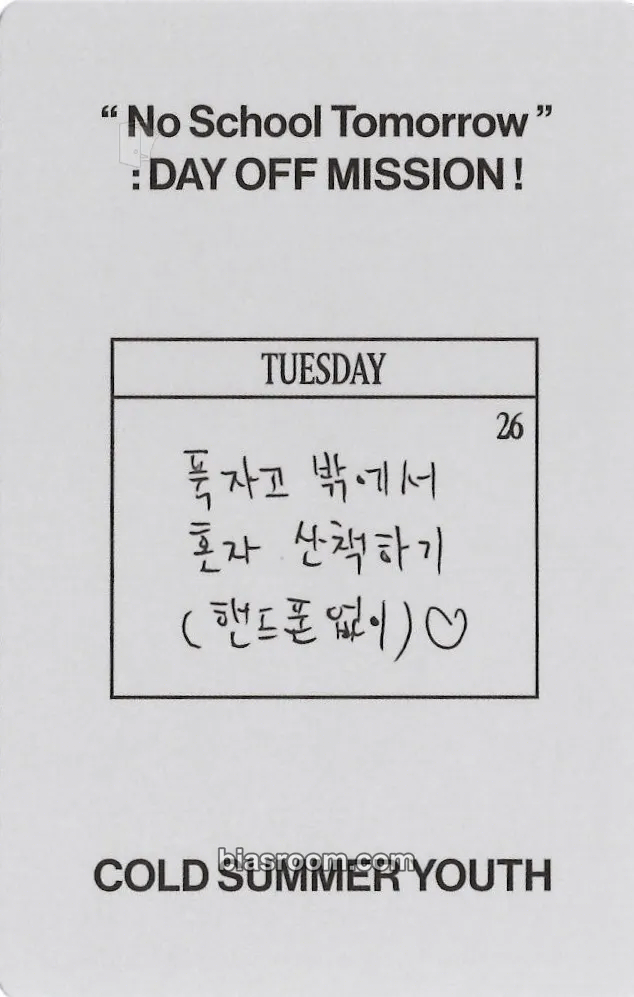 “ No School Tomorrow ”
: DAY OFF MISSION !
TUESDAY
26
푹 자고 밖에서
혼자 산책하기
( 핸드폰 없이 ) ♡
biasroom.com
COLD SUMMER YOUTH